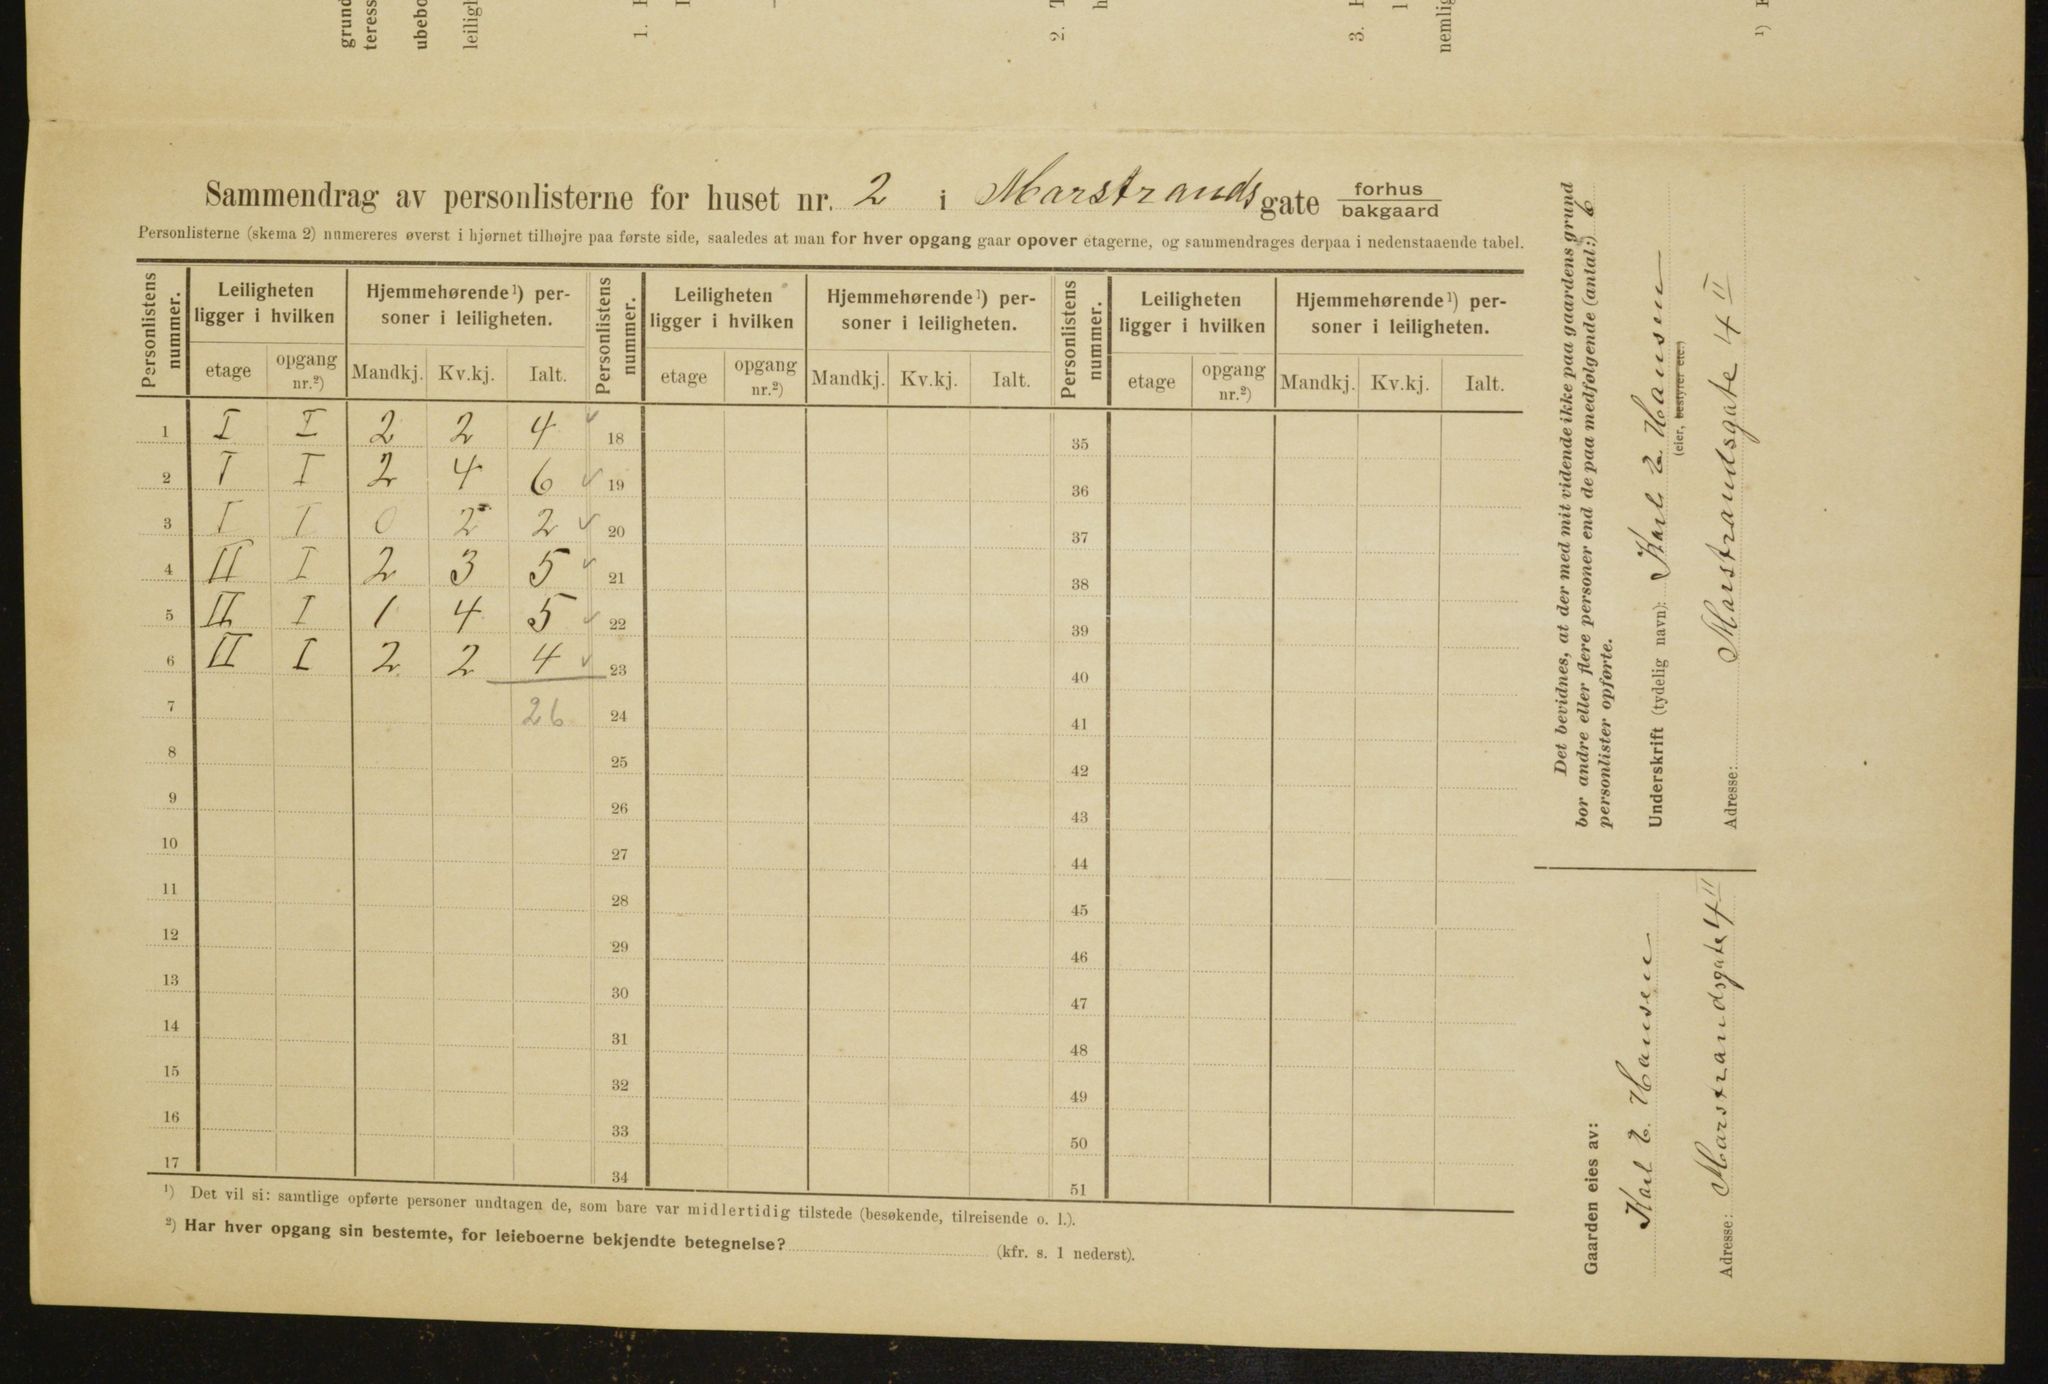 grund
teress
ubebo
leilig
1.
2.
3.
nemlig
¹)
Sammendrag av personlisterne for huset nr. 2 i Marstrandsgate forhus
bakgaard
Personlisterne (skema 2) numereres øverst i hjørnet tilhøjre paa første side, saaledes at man for hver opgang gaar opover etagerne, og sammendrages derpaa i nedenstaaende tabel.
Personlistens nummer. Leiligheten ligger i hvilken Hjemmehørende¹) personer i leiligheten. Personlistens nummer. Leiligheten ligger i hvilken Hjemmehørende¹) personer i leiligheten. Personlistens nummer. Leiligheten ligger i hvilken Hjemmehørende¹) personer i leiligheten.
etage opgang nr.²) Mandkj. Kv.kj. Ialt. etage opgang nr.²) Mandkj. Kv.kj. Ialt. etage opgang nr.²) Mandkj. Kv.kj. Ialt.
1 I I 2 2 4 ✓ 18 35
2 I I 2 4 6 ✓ 19 36
3 I I 0 2 2 ✓ 20 37
4 II I 2 3 5 ✓ 21 38
5 II I 1 4 5 ✓ 22 39
6 II I 2 2 4 ✓ 23 40
7 26 24 41
8 25 42
9 26 43
10 27 44
11 28 45
12 29 46
13 30 47
14 31 48
15 32 49
16 33 50
17 34 51
¹) Det vil si: samtlige opførte personer undtagen de, som bare var midlertidig tilstede (besøkende, tilreisende o. l.).
²) Har hver opgang sin bestemte, for leieboerne bekjendte betegnelse? (kfr. s. 1 nederst).
Det bevidnes, at der med mit vidende ikke paa gaardens grund
bor andre eller flere personer end de paa medfølgende (antal:) 6
personlister opførte.
Underskrift (tydelig navn): Karl E. Hansen
(eier, bestyrer etc.)
Adresse: Marstrandsgate 4 II
Gaarden eies av:
Karl E. Hansen
Adresse: Marstrandsgate 4 II